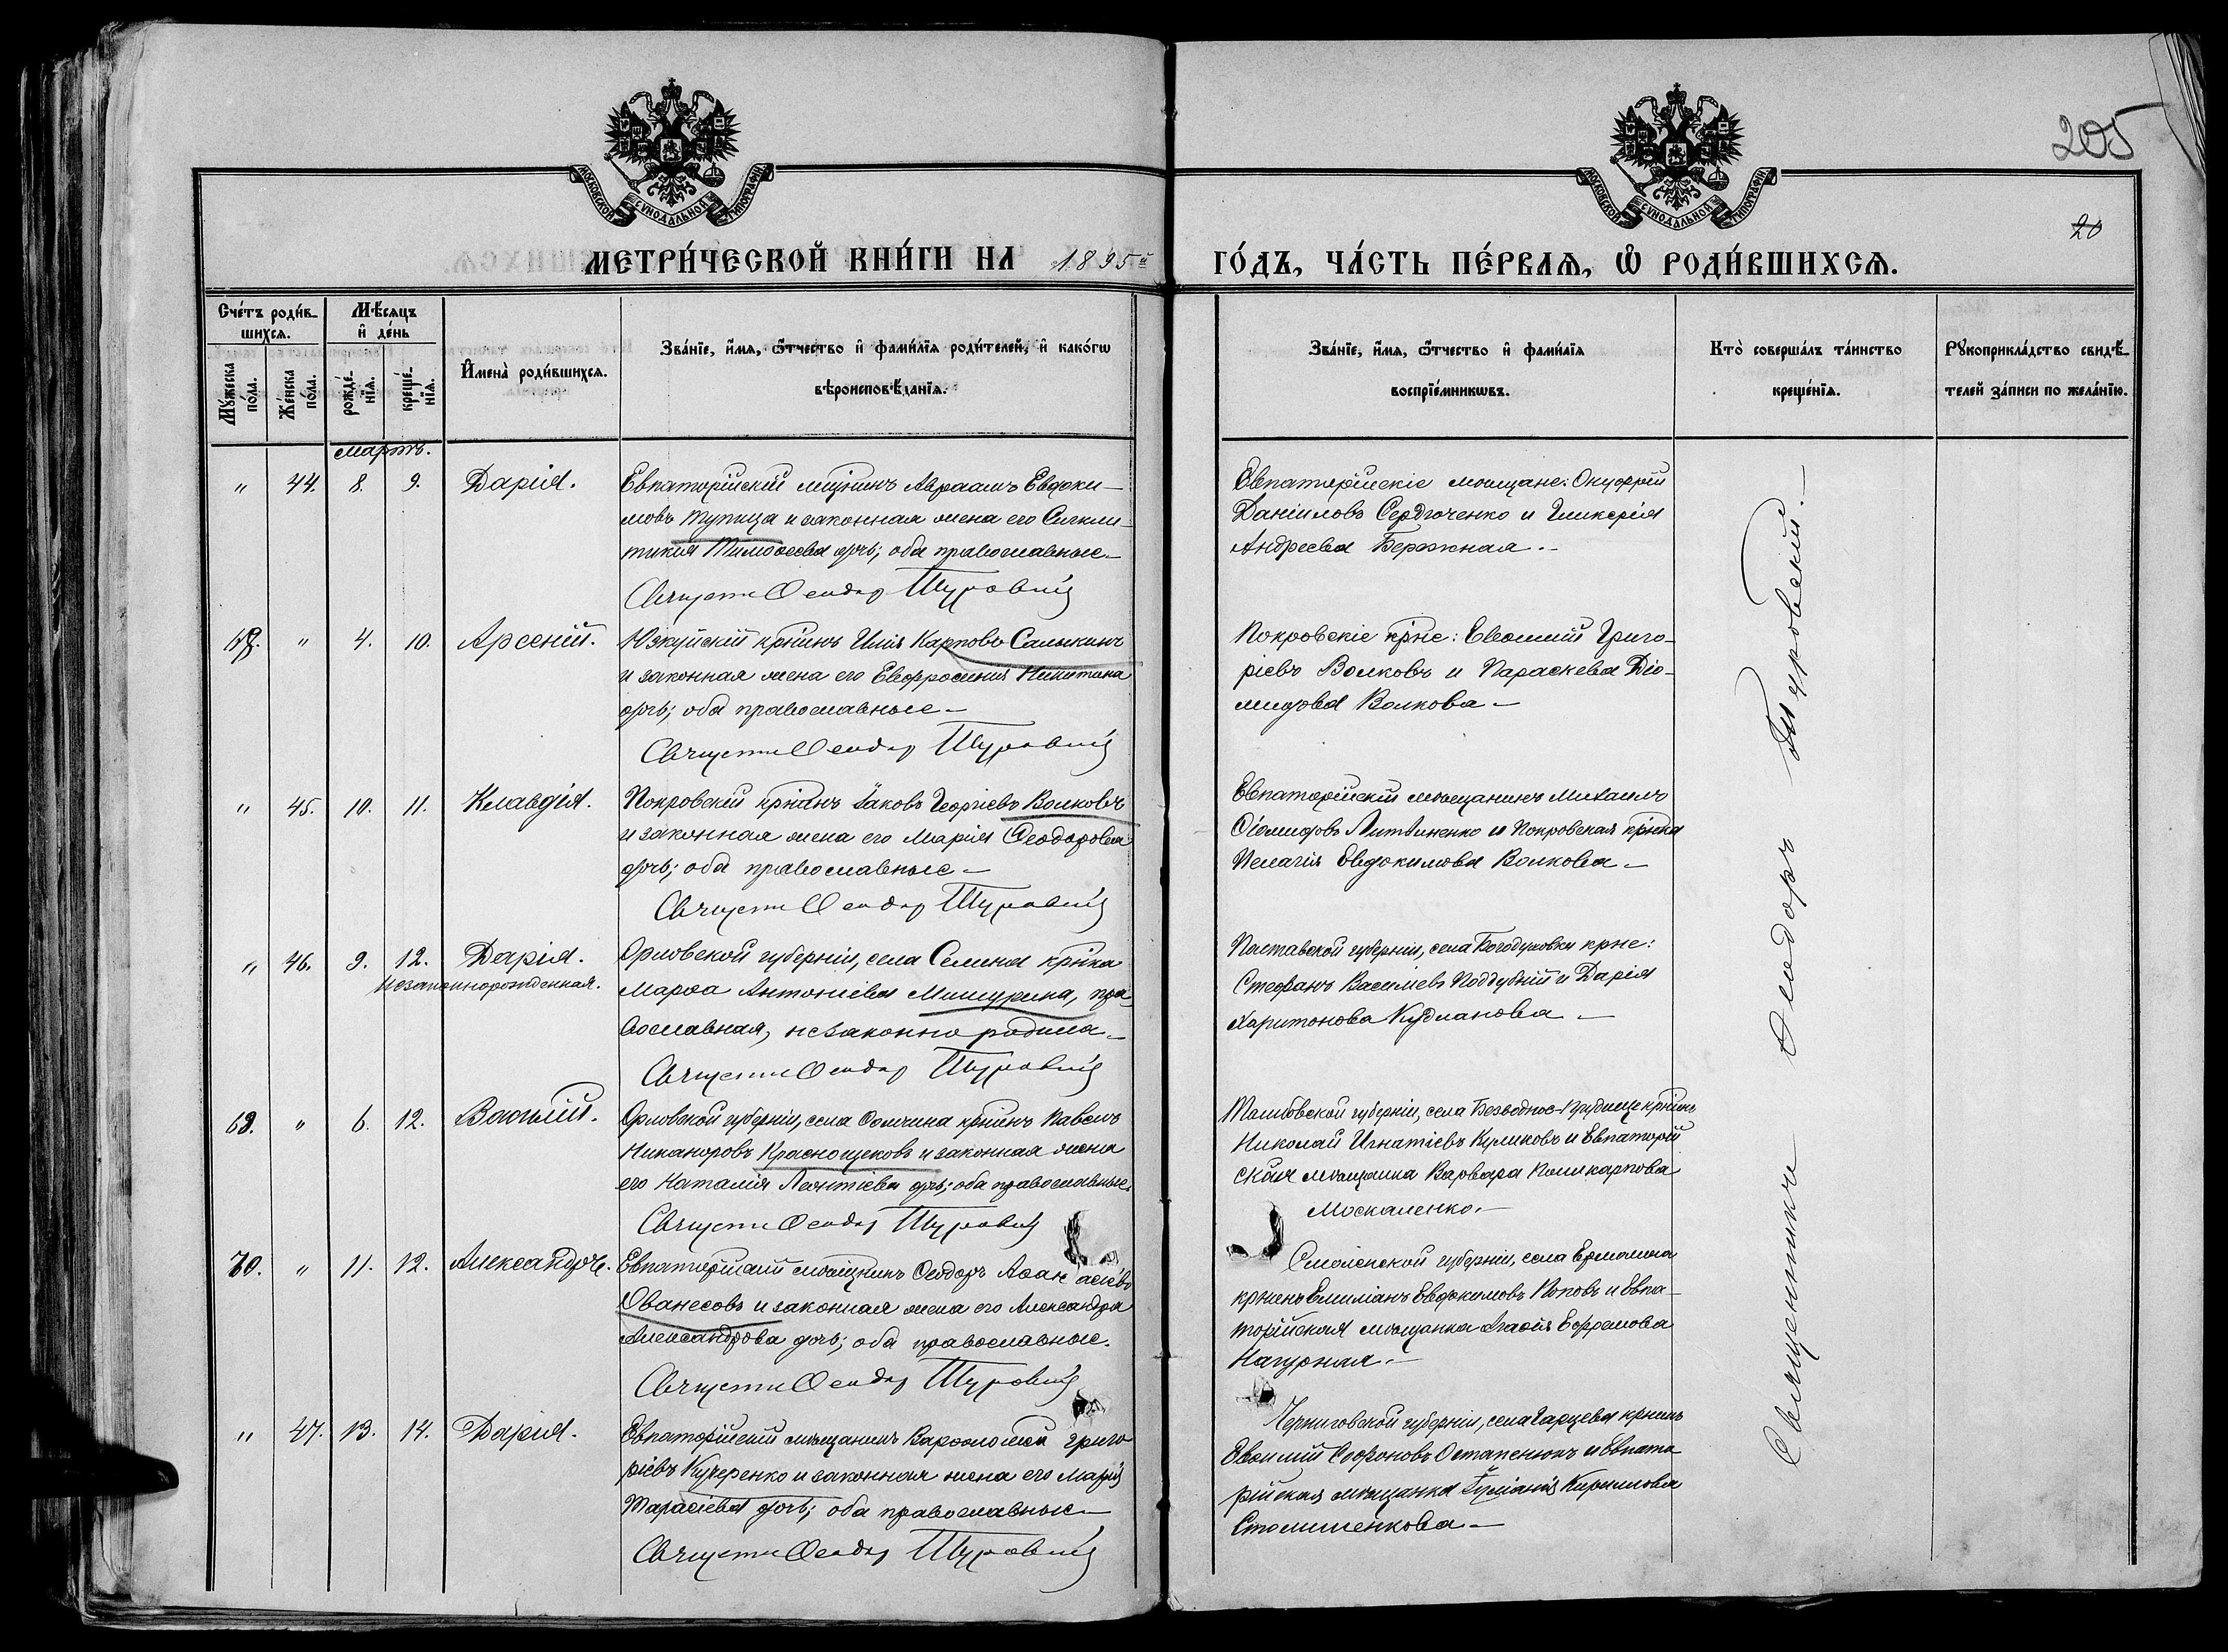 205
20
МОСКОВСКОЙ СУНОДАЛЬНОЙ ТИПОГРАФІИ
МОСКОВСКОЙ СУНОДАЛЬНОЙ ТИПОГРАФІИ
МЕТРИ́ЧЕСКОЙ КНИ́ГИ НА 1895й ГО́ДЪ, ЧА́СТЬ ПЕ́РВАѦ, Ѡ РОДИ́ВШИХСѦ.
Сче́тъ роди́в-
шихсѧ.
Мꙋ́жеска по́ла.
Же́нска по́ла.
Мѣ́сѧцъ
и де́нь
рожде́нїѧ.
креще́нїѧ.
Имена̀ роди́вшихсѧ.
Зва́нїе, и́мѧ, ѻ́тчество и фами́лїѧ роди́телей, и како́гѡ
вѣроисповѣ́данїѧ.
Зва́нїе, и́мѧ, ѻ́тчество и фами́лїѧ
воспрїе́мникѡвъ.
Кто̀ соверша́лъ та́инство
креще́нїѧ.
Рꙋкоприкла́дство свидѣ́-
телей за́писи по жела́нїю.
мартъ.
" 44. 8. 9. Дарія.
Евпаторійскій мщнинъ Авраамъ Евдоки-
мовъ Тупица и законная жена его Синкли-
тикія Тимоѳеева дочь; оба православные.
Священн Ѳеодор Туровскій
Евпаторійскіе мѣщане: Онуфрій
Даніиловъ Сердюченко и Гликерія
Андреева Бережная.-
" 4. 10. Арсеній.
крнинъ Илія Карповъ Салыкинъ
и законная жена его Евфросинія Никитина
дочь; оба православные-
Священн Ѳеодор Туровскій
Покровскіе крне: Евѳимій Григо-
ріевъ Волковъ и Параскева Діо-
мидова Волкова-
" 45. 10. 11. Клавдія.
Покровскій крнанъ Іаковъ Георгіевъ Волковъ
и законная жена его Марія Ѳеодорова
дочь; оба православные-
Священн Ѳеодор Туровскій
Евпаторійскій мѣщанинъ Михаилъ
Діомидовъ Литвиненко и Покровская крнка
Пелагія Евдокимова Волкова-
" 46. 9. 12. Дарія.
Незаконнорожденная.
Орловской губерніи, села Селина крнка
Марѳа Антоніева Мишурина, пра-
вославная, незаконно родила-
Священн Ѳеодор Туровскій
Полтавской губерніи, села Богодуховки крне:
Стефанъ Василіевъ Поддубній и Дарія
Харитонова Кудланова-
69. " 6. 12. Василій.
Орловской губерніи, села крнинъ Павелъ
Никаноровъ Краснощековъ и законная жена
его Наталія Леонтіева дчь; оба православные.
Священн Ѳеодор Туровскій
губерніи, села Безводное-Прудище крнинъ
Николай Игнатіевъ Куликовъ и Евпаторій
ская мѣщанка Варвара Поликарпова
Москаленко.-
70. " 11. 12. Александръ.
Евпаторійскій мѣщнинъ Ѳеодоръ Аѳанасіевъ
Ованесовъ и законная жена его Александра
Александрова дочь; оба православные.
Священн Ѳеодор Туровскій
Смоленской губерніи, села
крнинъ Емиліанъ Евдокимовъ Поповъ и Евпа-
торійская мѣщанка Агаѳія Ефремова
Нагурная.-
" 47. 13. 14. Дарія.
Евпаторійскій мѣщанинъ Варѳоломей Григо
ріевъ Кучеренко и законная жена его Марія
Тарасіева дочь; оба православные-
Священн Ѳеодор Туровскій
Черниговской губерніи, села крнинъ
Евѳимій Софоновъ Остапенкъ и Евпато
рійская мѣщанка Іуліанія Кириллова
Священникъ Ѳеодоръ Туровскій.-